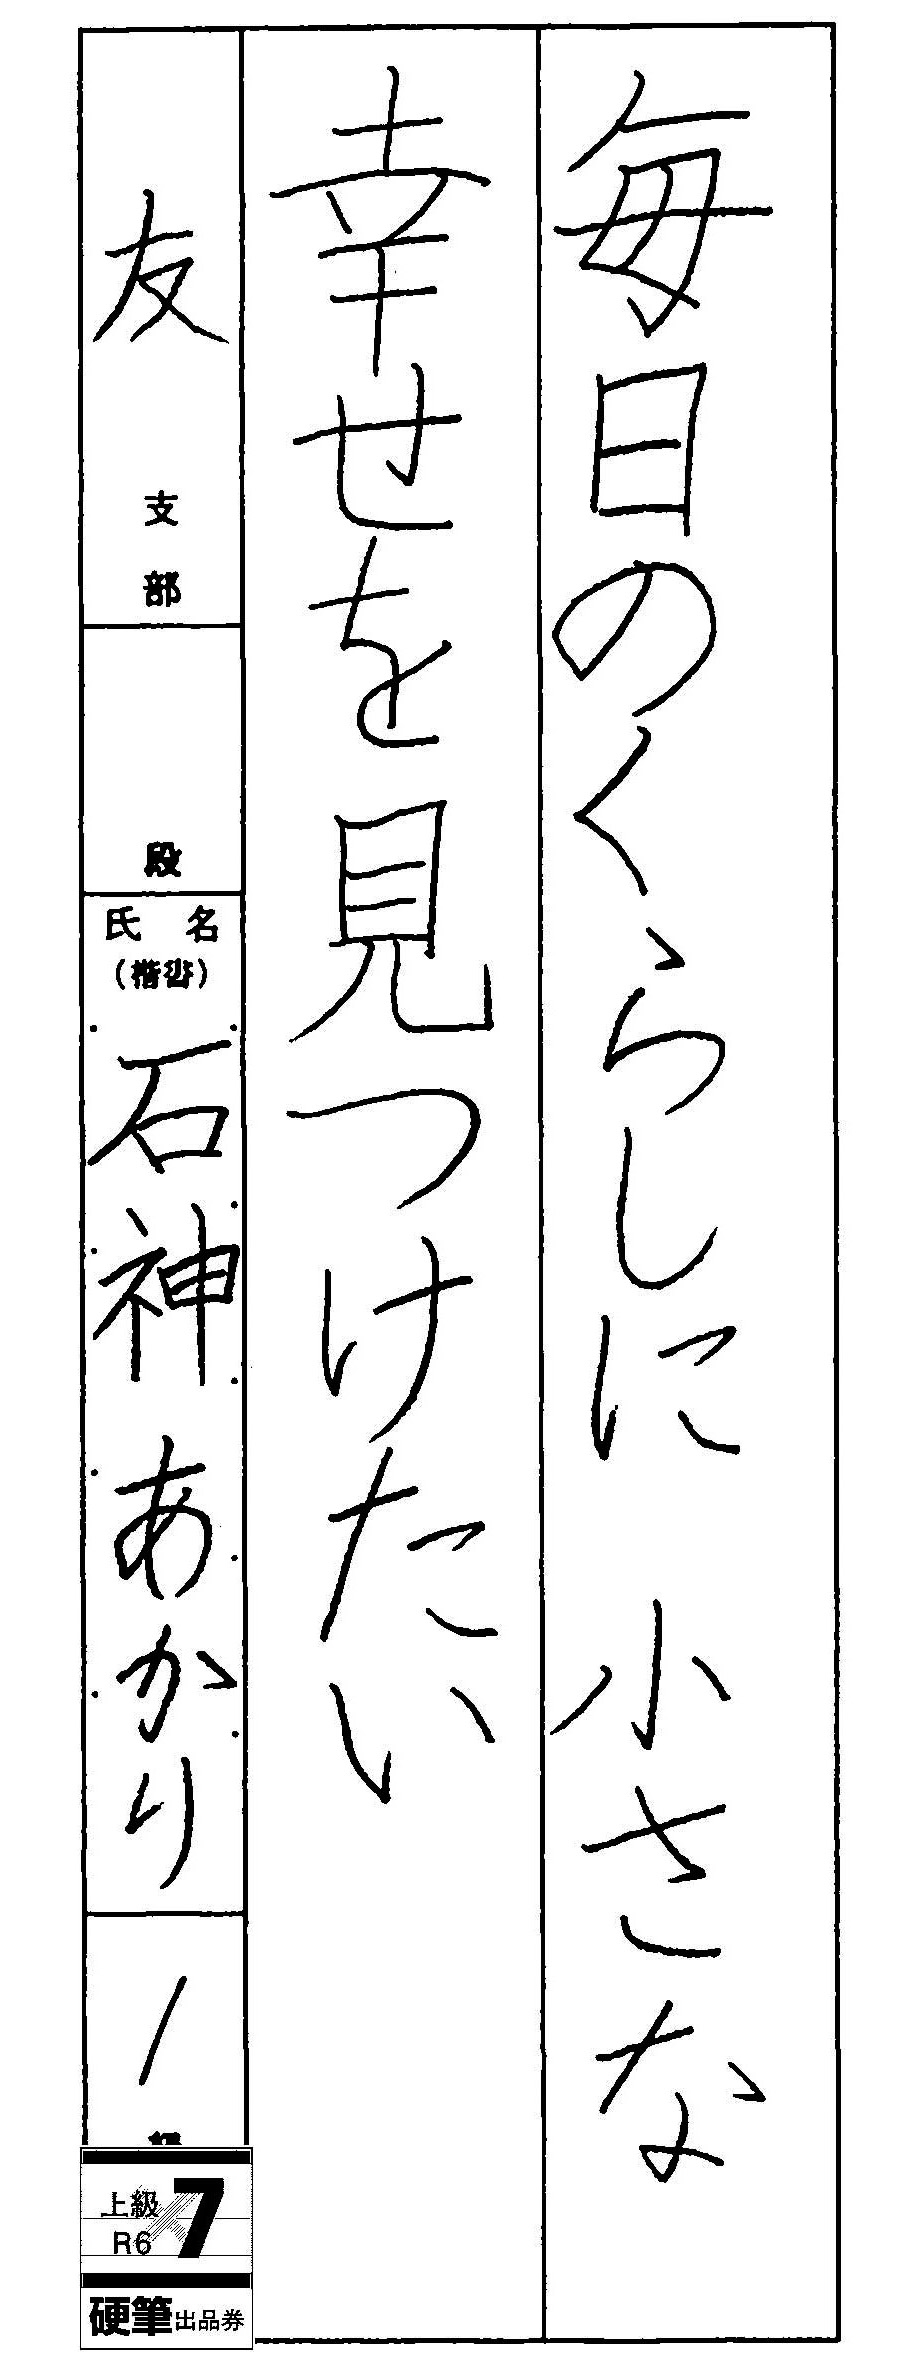 毎日のくらしに 小さな
幸せを見つけたい
友 支部
段
氏名
(楷書)
石神あかり
1 級
上級
R6
7
硬筆出品券